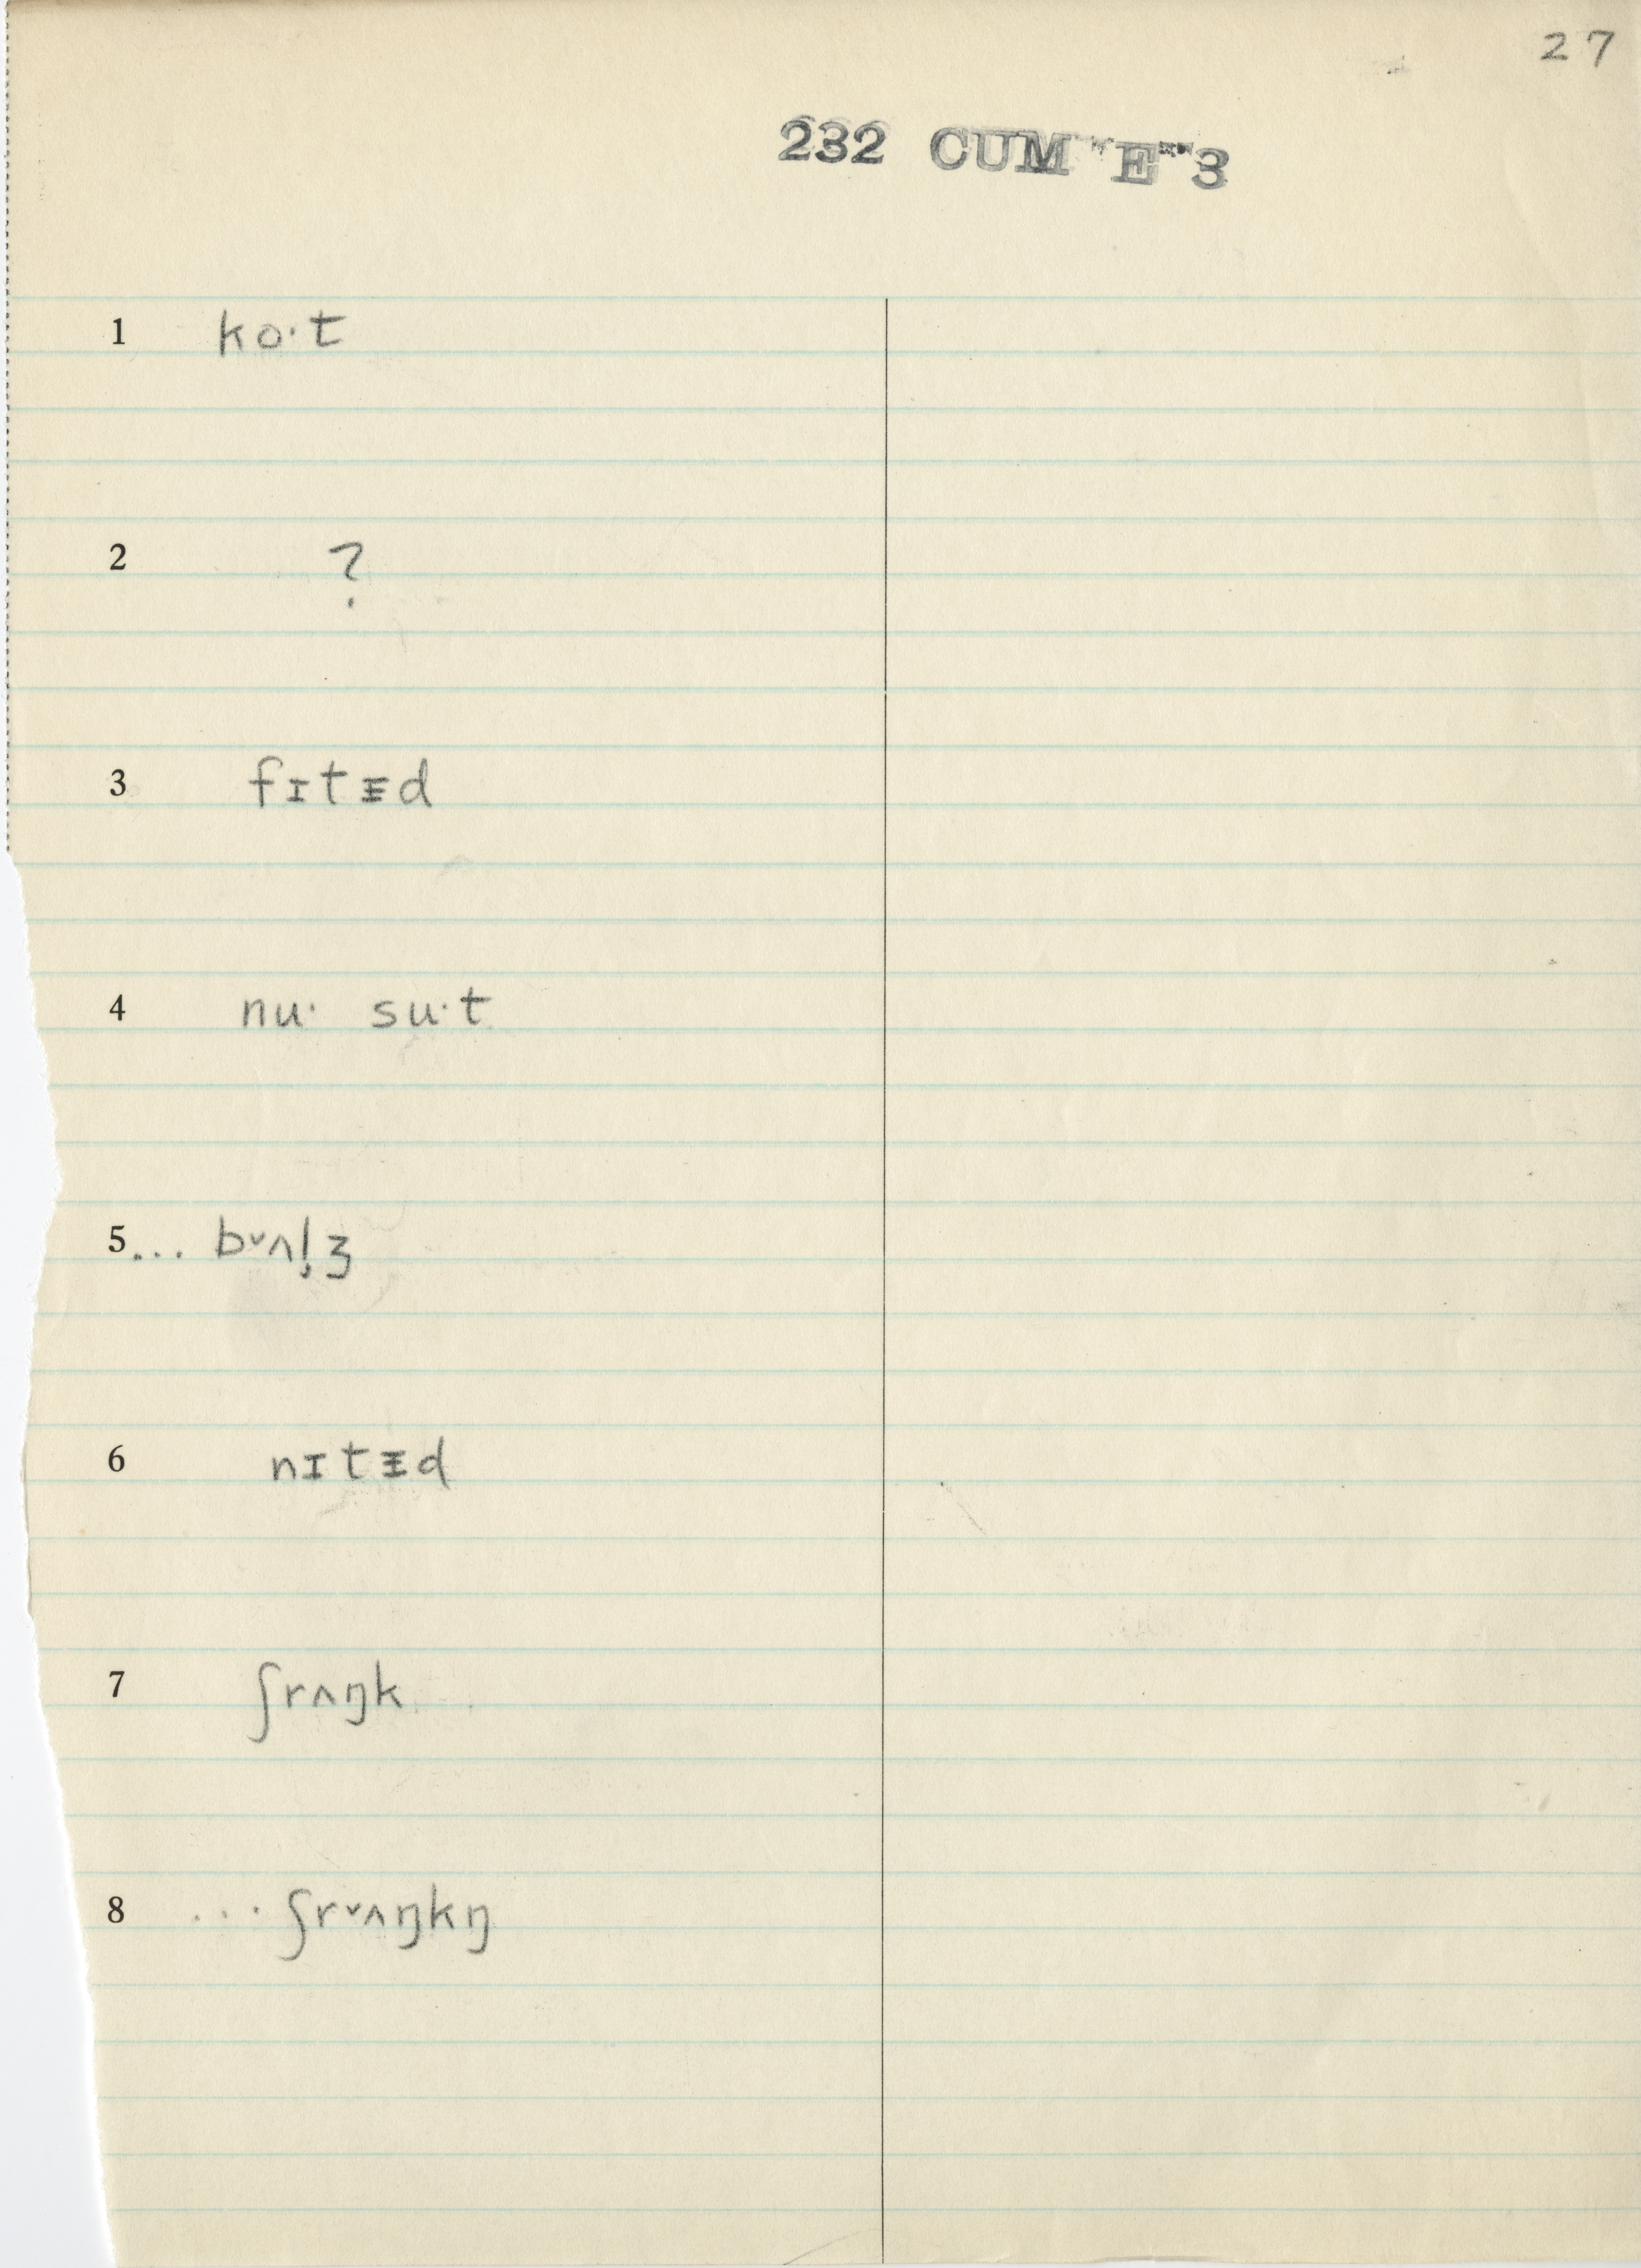 27
232 CUM E 3
1 ko·t
2 ?
3 fɪtᵻd
4 nu· su·t
5... bᵛʌl̩ʒ
6 nɪtᵻd
7 ʃrʌŋk
8 ... ʃrᵛʌŋkŋ